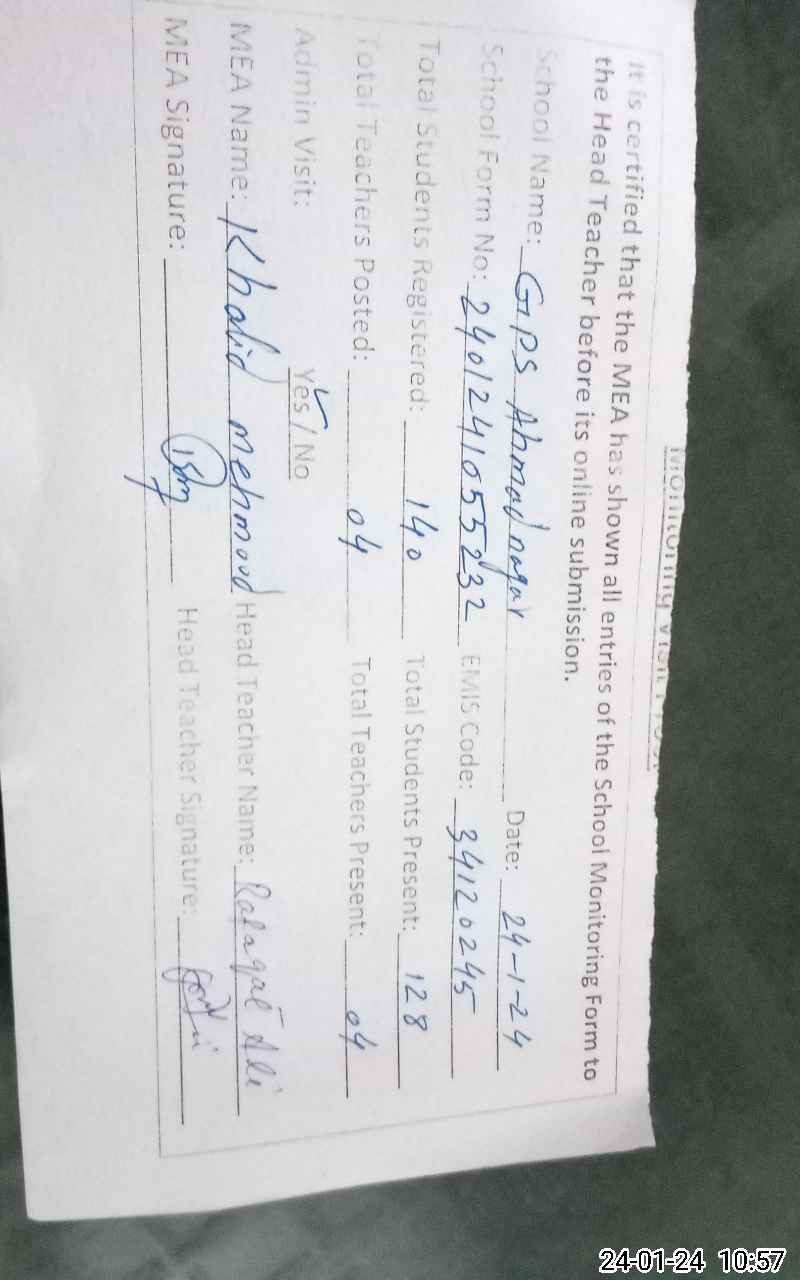 Monitoring Visit
It is certified that the MEA has shown all entries of the School Monitoring Form to
the Head Teacher before its online submission.
School Name: GPS Ahmad nagar Date: 24-1-24
School Form No: 2401241055232 EMIS Code: 34120245
Total Students Registered: 140 Total Students Present: 128
Total Teachers Posted: 04 Total Teachers Present: 04
Admin Visit: Yes / No
MEA Name: Khalid mehmood Head Teacher Name: Rafaqat Ali
MEA Signature: Head Teacher Signature:
24-01-24 10:57